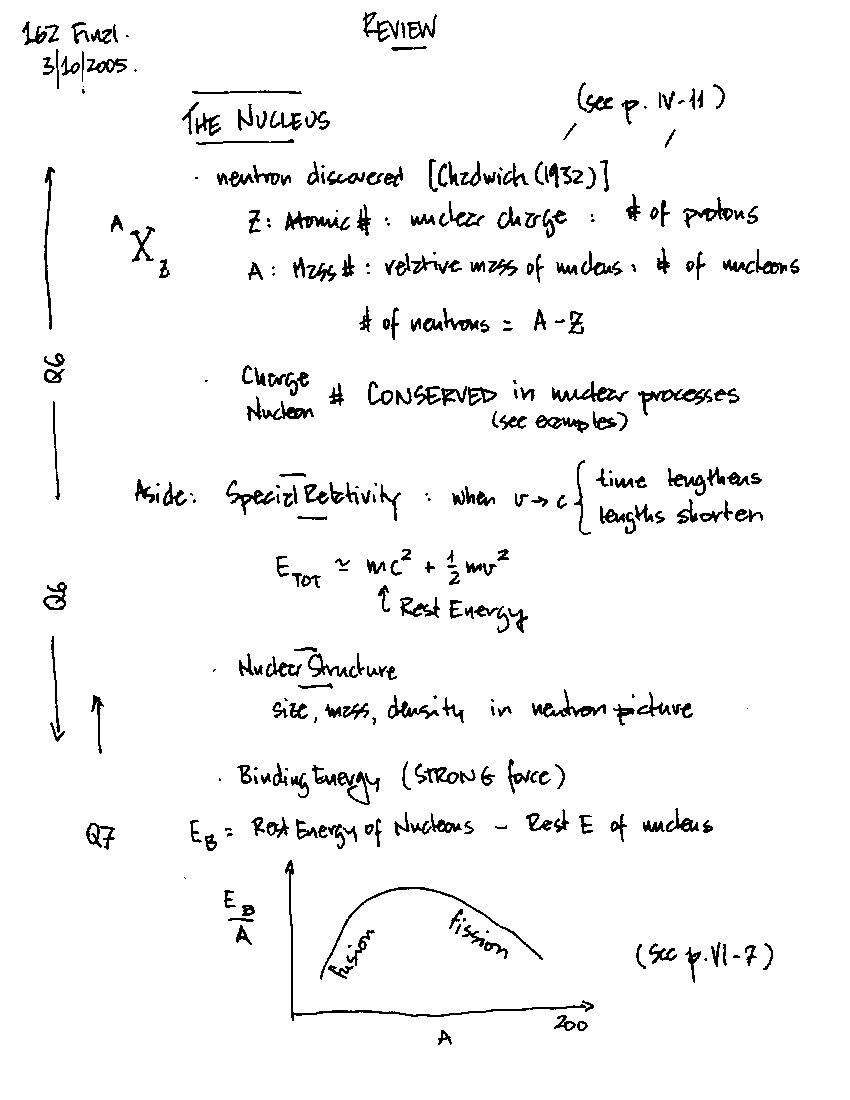 162 Final.
REVIEW
3/10/2005.
THE NUCLEUS
(see p. IV-11)
· neutron discovered [Chadwich (1932)]
Z: Atomic # : nuclear charge : # of protons
A X Z
A: Mass # : relative mass of nucleus : # of nucleons
# of neutrons = A - Z
Q6
· Charge
Nucleon # CONSERVED in nuclear processes
(see examples)
Aside: Special Relativity : when v → c { time lengthens
lengths shorten
E_TOT ≃ mc² + ½ mv²
↑ Rest Energy
Q6
· Nuclear Structure
size, mass, density in neutron picture
· Binding Energy (STRONG force)
Q7 E_B = Rest Energy of Nucleons - Rest E of nucleus
E_B/A
fusion
fission
(see p. VI-7)
200
A